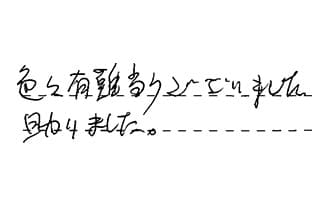 色々有難当うございました
助りました。